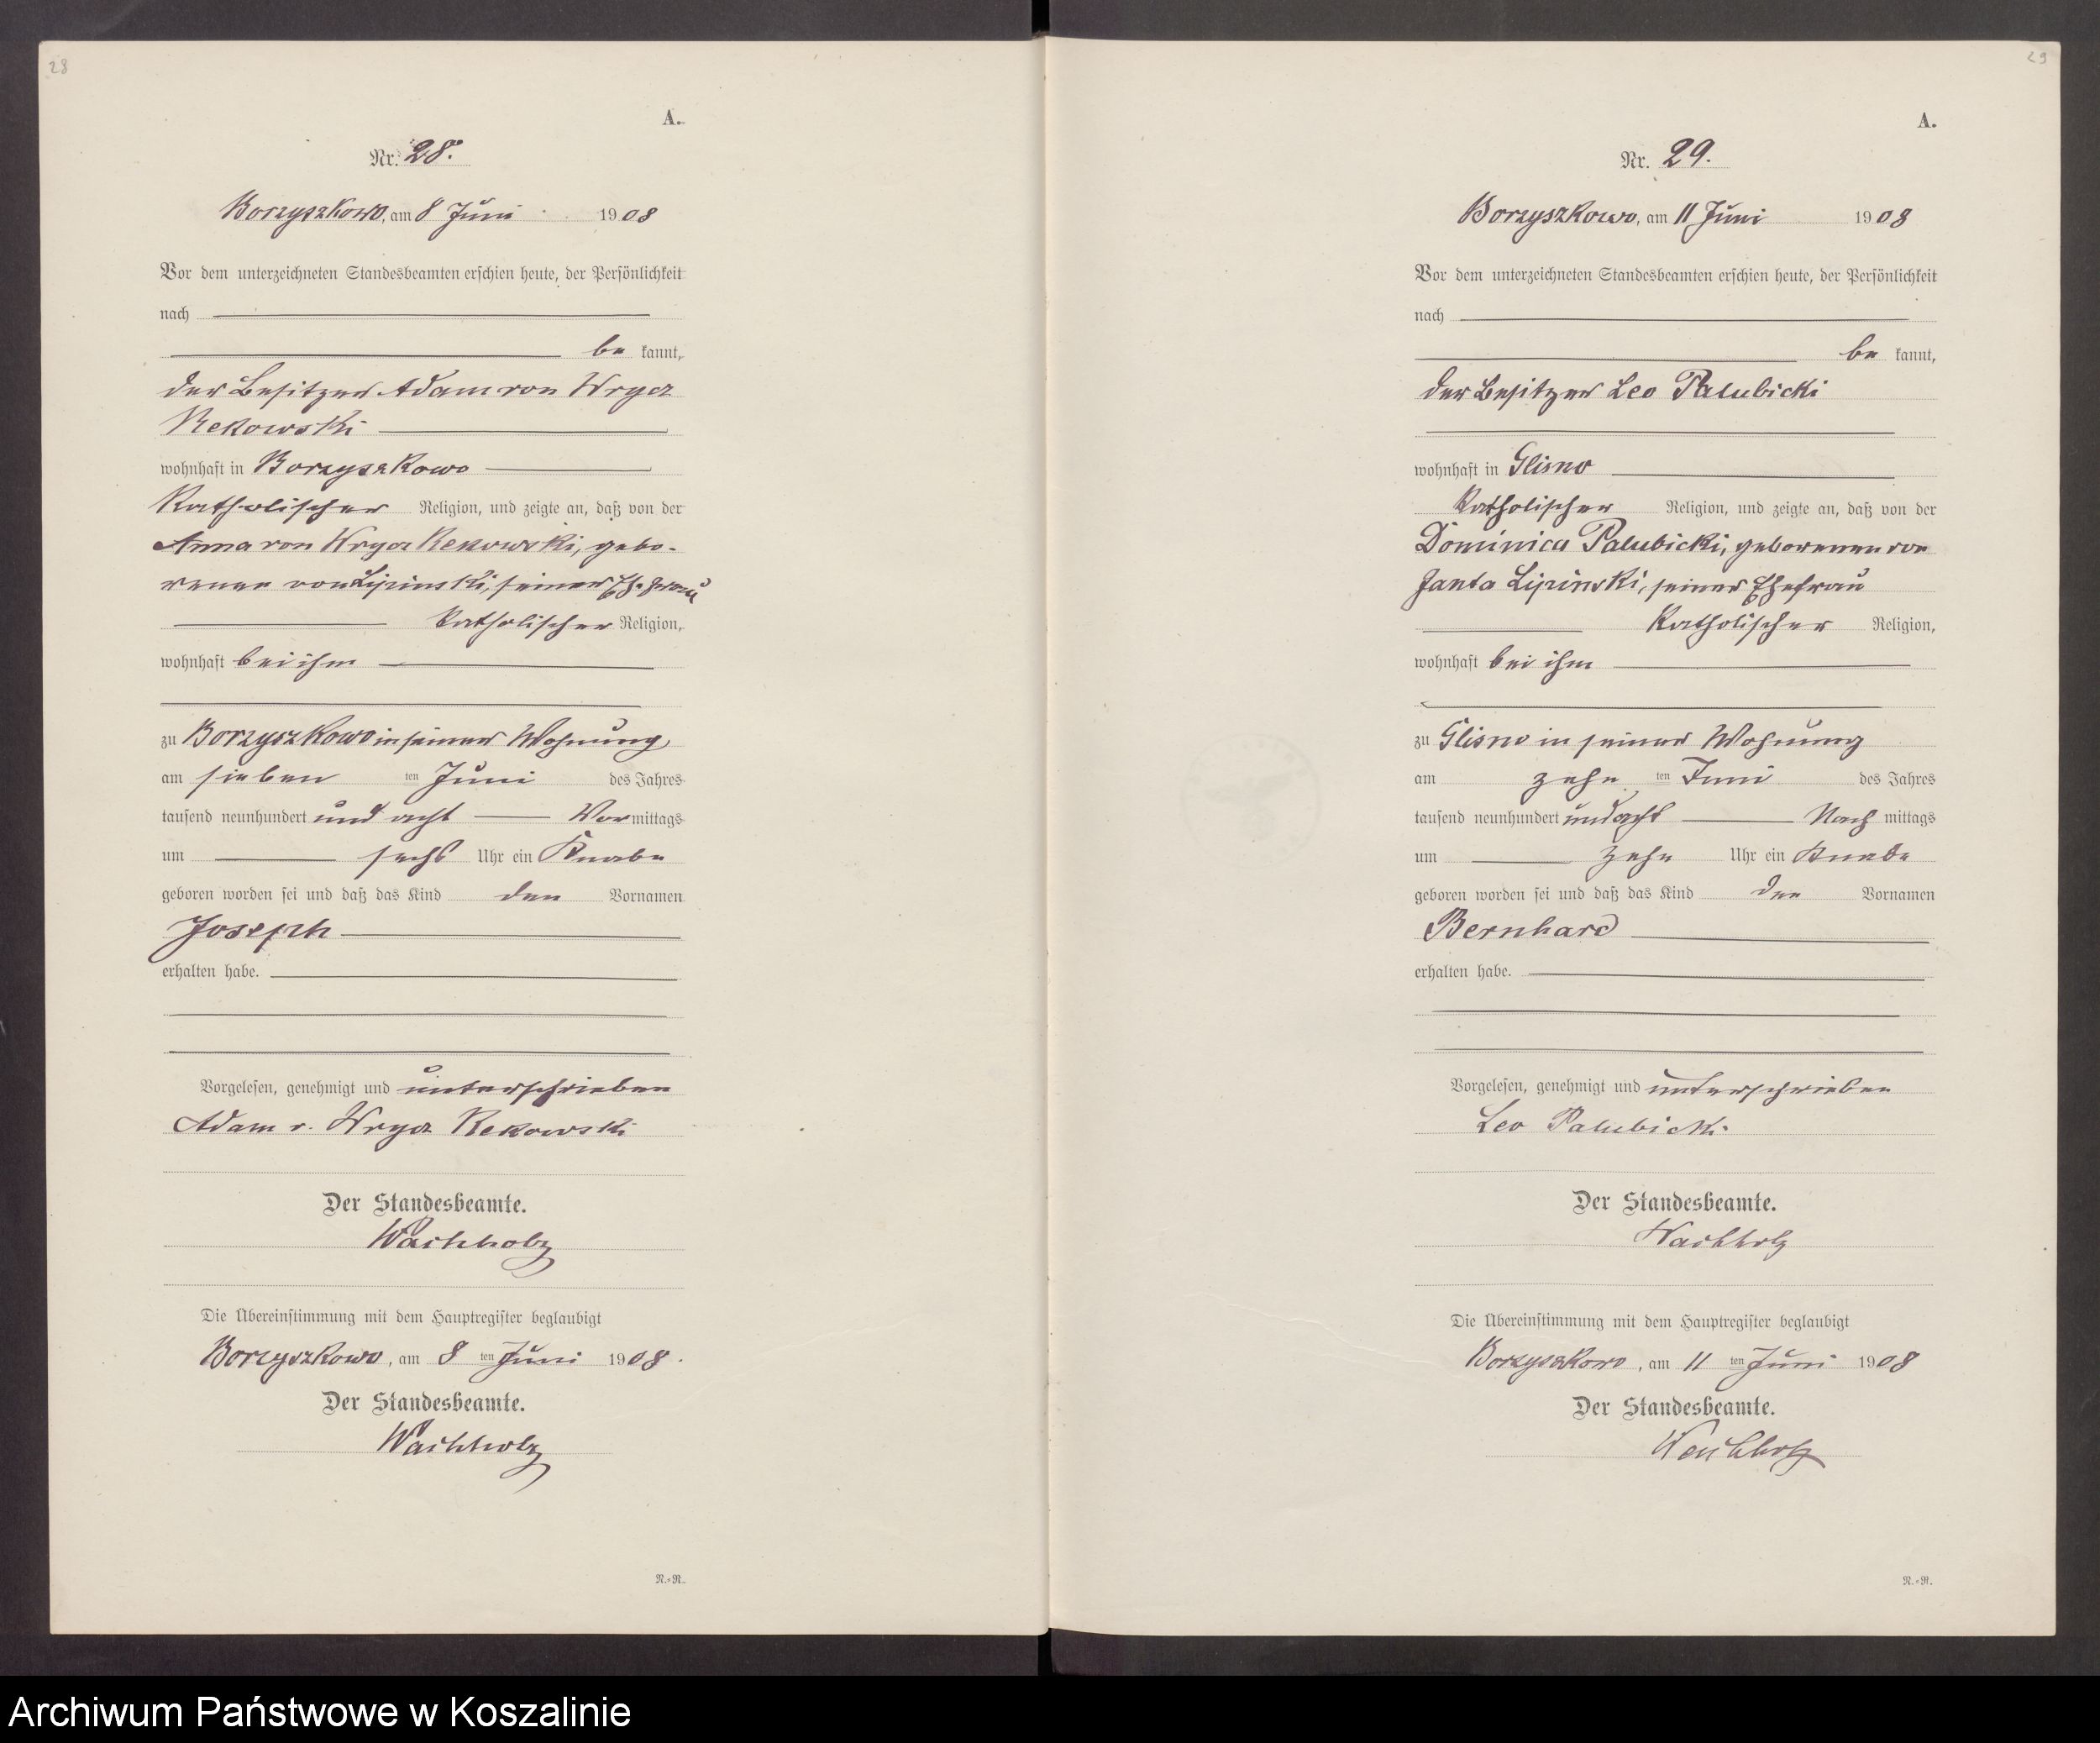 28
A.
Nr. 28.
Borzyszkowo, am 8 Juni 1908
Vor dem unterzeichneten Standesbeamten erschien heute, der Persönlichkeit
nach
be kannt,
der Besitzer Adam von Wrycz
Rekowski
wohnhaft in Borzyszkowo
Katholischer Religion, und zeigte an, daß von der
Anna von Wrycz Rekowski, gebo-
renen von Lipinski, seiner Ehefrau
Katholischer Religion,
wohnhaft bei ihm
zu Borzyszkowo in seiner Wohnung
am sieben ten Juni des Jahres
tausend neunhundert und acht Vor mittags
um sechs Uhr ein Knabe
geboren worden sei und daß das Kind den Vornamen
Joseph
erhalten habe.
Vorgelesen, genehmigt und unterschrieben
Adam v. Wrycz Rekowski
Der Standesbeamte.
Wachholz
Die Übereinstimmung mit dem Hauptregister beglaubigt
Borzyszkowo, am 8 ten Juni 1908.
Der Standesbeamte.
Wachholz
N.-R.
29
A.
Nr. 29.
Borzyszkowo, am 11 Juni 1908
Vor dem unterzeichneten Standesbeamten erschien heute, der Persönlichkeit
nach
be kannt,
der Besitzer Leo Palubicki
wohnhaft in Glisno
Katholischer Religion, und zeigte an, daß von der
Dominica Palubicki, geborenen von
Janta Lipinski, seiner Ehefrau
Katholischer Religion,
wohnhaft bei ihm
zu Glisno in seiner Wohnung
am zehn ten Juni des Jahres
tausend neunhundert und acht Nach mittags
um zehn Uhr ein Knabe
geboren worden sei und daß das Kind den Vornamen
Bernhard
erhalten habe.
Vorgelesen, genehmigt und unterschrieben
Leo Palubicki
Der Standesbeamte.
Wachholz
Die Übereinstimmung mit dem Hauptregister beglaubigt
Borzyszkowo, am 11 ten Juni 1908
Der Standesbeamte.
Wachholz
N.-R.
Archiwum Państwowe w Koszalinie